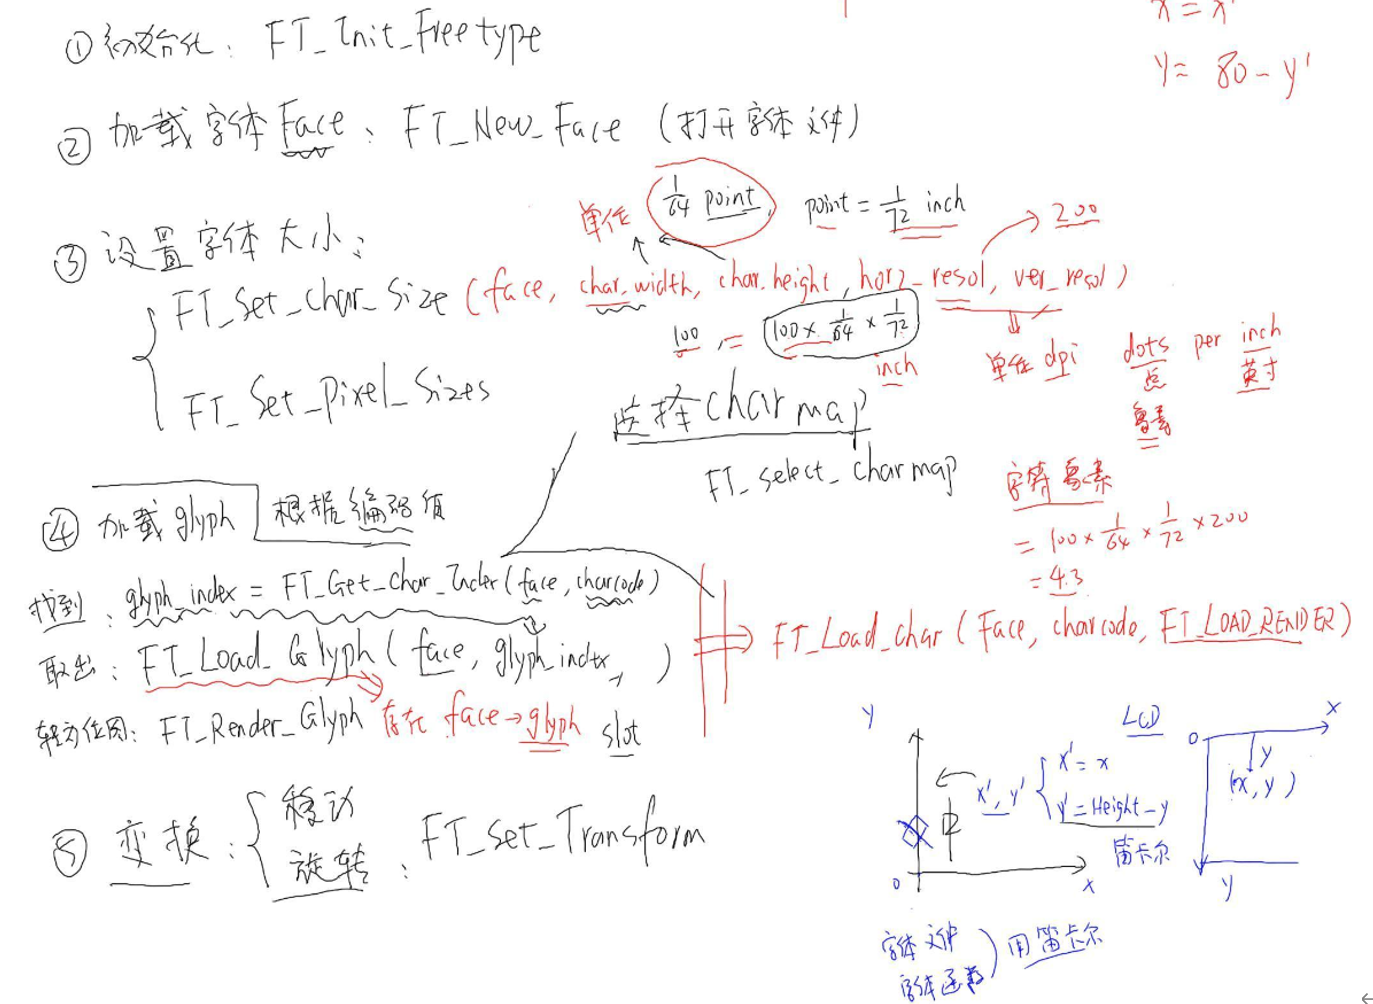 x = x'
y = 80 - y'
① 初始化: FT_Init_Freetype
② 加载字体Face: FT_New_Face (打开字体文件)
单位 1/64 point point = 1/72 inch 200
③ 设置字体大小:
FT_Set_char_Size (face, char_width, char_height, horz_resol, ver_resol)
100 = 100 × 1/64 × 1/72 inch
单位 dpi dots per inch
点 英寸
像素
FT_Set_Pixel_Sizes
选择charmap
FT_select_charmap
字符像素
= 100 × 1/64 × 1/72 × 200
= 4.3
④ 加载glyph 根据编码值
找到: glyph_index = FT_Get_Char_Index(face, charcode)
取出: FT_Load_Glyph(face, glyph_index, )
FT_Load_char (Face, charcode, FT_LOAD_RENDER)
转为位图: FT_Render_Glyph 存在 face→glyph slot
⑤ 变换: 移动
旋转: FT_Set_Transform
Y
LCD
0 X
x', y' x' = x
y' = Height - y
笛卡尔
y
(x, y)
0 X
Y
字体文件
字体函数
用笛卡尔